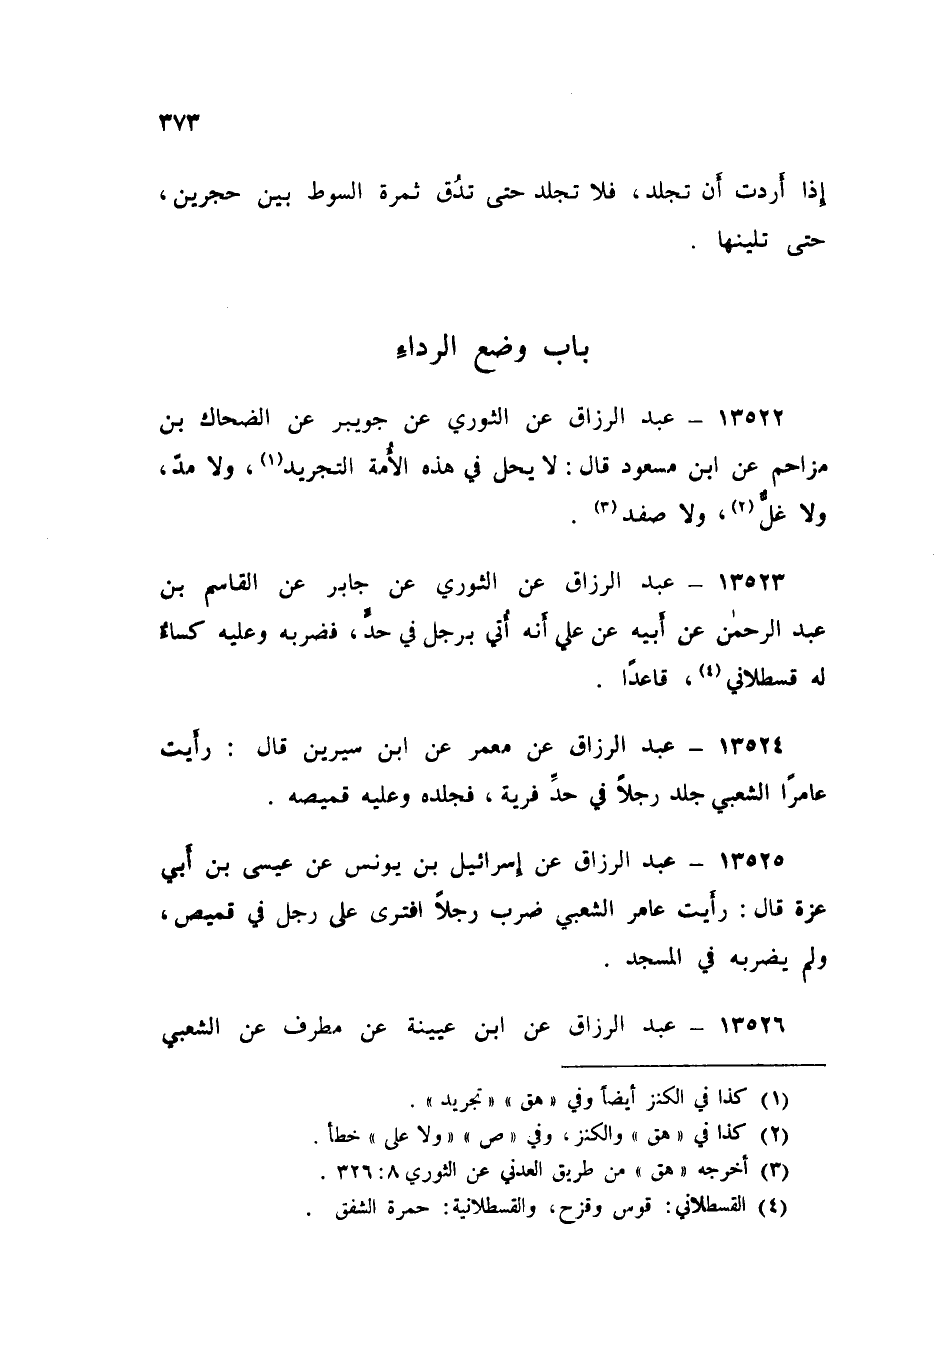 ٣٧٣
إذا أردت أن تجلد، فلا تجلد حتى تدُق ثمرة السوط بين حجرين،
حتى تلينها .
باب وضع الرداء
١٣٥٢٢ – عبد الرزاق عن الثوري عن جويبر عن الضحاك بن
مزاحم عن ابن مسعود قال : لا يحل في هذه الأُمة التجريد(١)، ولا مدّ،
ولا غلٌّ(٢)، ولا صفد(٣) .
١٣٥٢٣ – عبد الرزاق عن الثوري عن جابر عن القاسم بن
عبد الرحمٰن عن أبيه عن علي أنه أُتي برجل في حدٍّ، فضربه وعليه كساءٌ
له قسطلاني(٤)، قاعدًا .
١٣٥٢٤ – عبد الرزاق عن معمر عن ابن سيرين قال : رأيت
عامرًا الشعبي جلد رجلاً في حدِّ فرية ، فجلده وعليه قميصه .
١٣٥٢٥ – عبد الرزاق عن إسرائيل بن يونس عن عيسى بن أبي
عزة قال : رأيت عامر الشعبي ضرب رجلاً افترى على رجل في قميص،
ولم يضربه في المسجد .
١٣٥٢٦ – عبد الرزاق عن ابن عيينة عن مطرف عن الشعبي
(١) كذا في الكنز أيضاً وفي « هق » « تجريد » .
(٢) كذا في « هق » والكنز، وفي « ص » « ولا على » خطأ .
(٣) أخرجه « هق » من طريق العدني عن الثوري ٨: ٣٢٦ .
(٤) القسطلاني: قوس وقزح، والقسطلانية: حمرة الشفق .